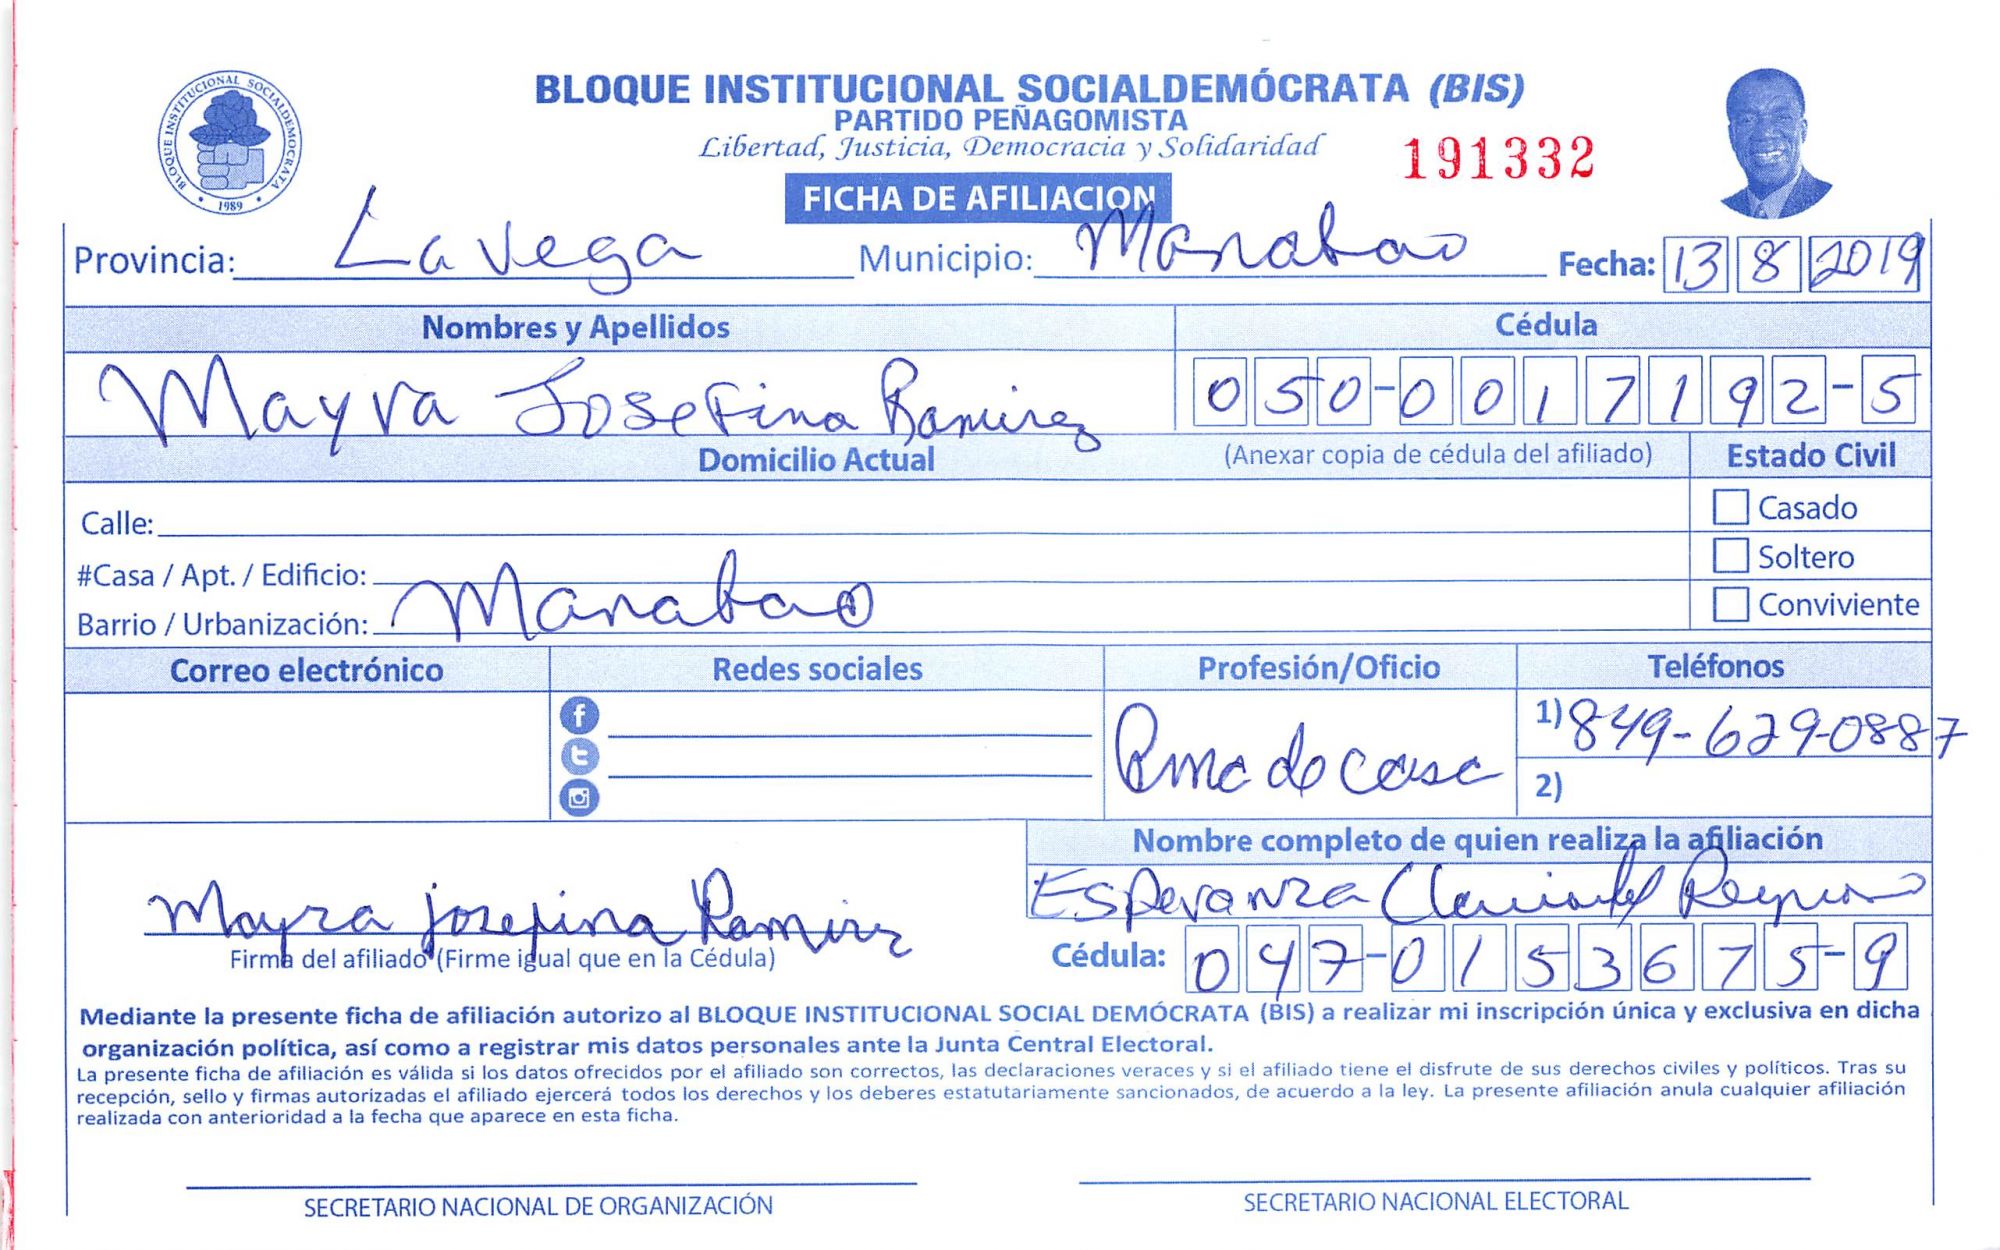 BLOQUE INSTITUCIONAL SOCIALDEMÓCRATA
1989
BLOQUE INSTITUCIONAL SOCIALDEMÓCRATA (BIS)
PARTIDO PEÑAGOMISTA
Libertad, Justicia, Democracia y Solidaridad
191332
FICHA DE AFILIACION
Provincia: La Vega Municipio: Manabao Fecha: 13 8 2019
Nombres y Apellidos Cédula
Mayra Josefina Ramirez 050-0017192-5
Domicilio Actual (Anexar copia de cédula del afiliado) Estado Civil
Calle: Casado
#Casa / Apt. / Edificio: Soltero
Barrio / Urbanización: Manabao Conviviente
Correo electrónico Redes sociales Profesión/Oficio Teléfonos
1) 849-629-0887
Ama de casa
2)
Nombre completo de quien realiza la afiliación
Esperanza
Mayra Josefina Ramirez
Firma del afiliado (Firme igual que en la Cédula) Cédula: 047-0153675-9
Mediante la presente ficha de afiliación autorizo al BLOQUE INSTITUCIONAL SOCIAL DEMÓCRATA (BIS) a realizar mi inscripción única y exclusiva en dicha
organización política, así como a registrar mis datos personales ante la Junta Central Electoral.
La presente ficha de afiliación es válida si los datos ofrecidos por el afiliado son correctos, las declaraciones veraces y si el afiliado tiene el disfrute de sus derechos civiles y políticos. Tras su
recepción, sello y firmas autorizadas el afiliado ejercerá todos los derechos y los deberes estatutariamente sancionados, de acuerdo a la ley. La presente afiliación anula cualquier afiliación
realizada con anterioridad a la fecha que aparece en esta ficha.
SECRETARIO NACIONAL DE ORGANIZACIÓN SECRETARIO NACIONAL ELECTORAL